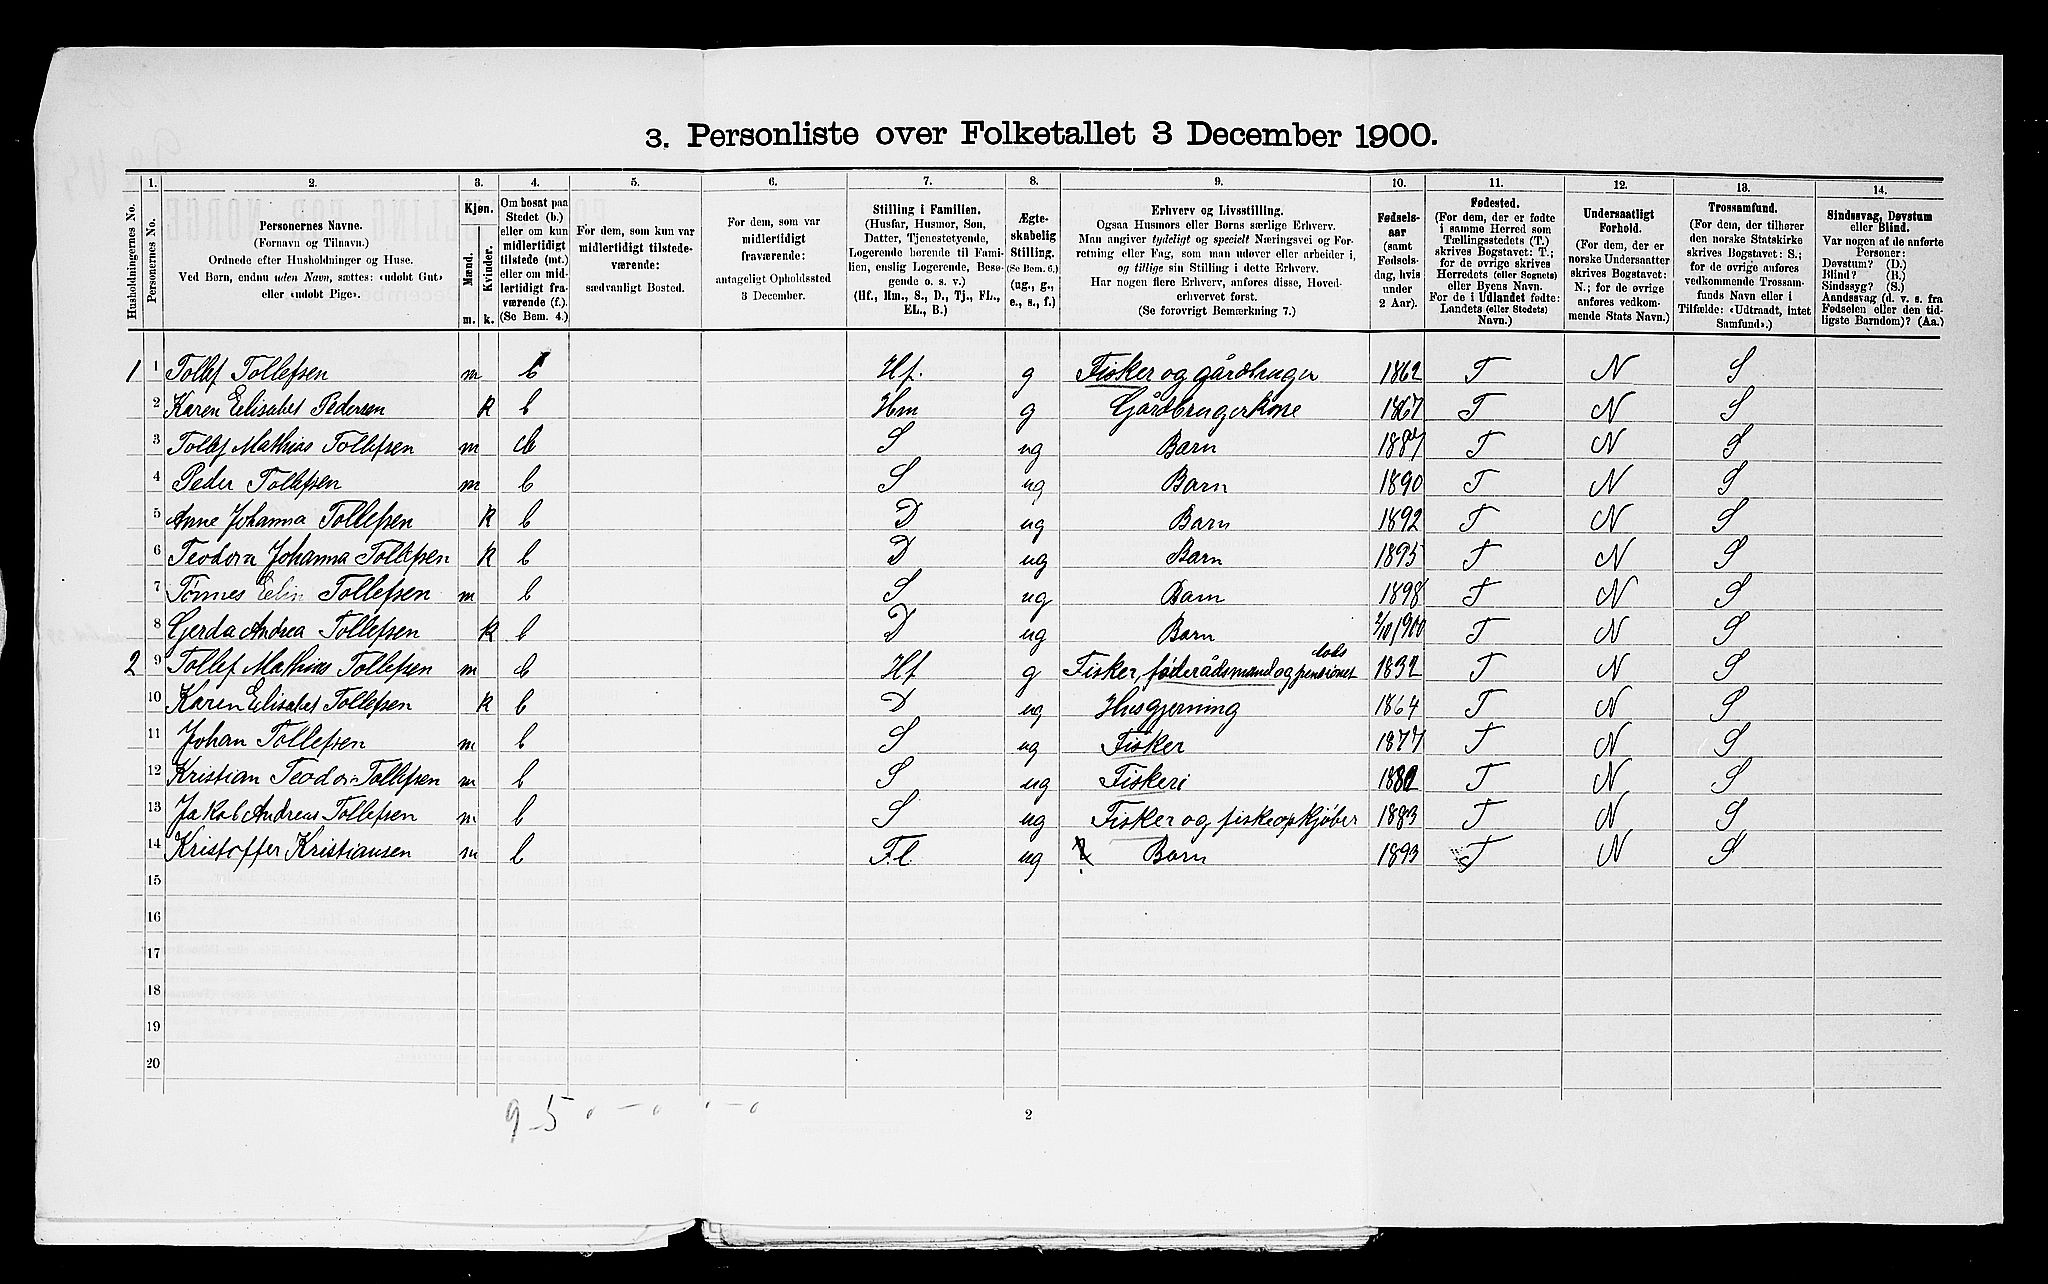 3. Personliste over Folketallet 3 December 1900.
Husholdningernes No.
1.
Personernes No.
2.
Personernes Navne.
(Fornavn og Tilnavn.)
Ordnede efter Husholdninger og Huse.
Ved Børn, endnu uden Navn, sættes: «udøbt Gut»
eller «udøbt Pige».
3.
Kjøn.
Mænd.
Kvinder.
m. k.
4.
Om bosat paa
Stedet (b.)
eller om kun
midlertidigt
tilstede (mt.)
eller om mid-
lertidigt fra-
værende (f.).
(Se Bem. 4.)
5.
For dem, som kun var
midlertidigt tilstede-
værende:
sædvanligt Bosted.
6.
For dem, som var
midlertidigt
fraværende:
antageligt Opholdssted
3 December.
7.
Stilling i Familien.
(Husfar, Husmor, Søn,
Datter, Tjenestetyende,
Logerende hørende til Fami-
lien, enslig Logerende, Besø-
gende o. s. v.)
(Hf., Hm., S., D., Tj., FL.,
EL., B.)
8.
Ægte-
skabelig
Stilling.
(Se Bem. 6.)
(ug., g.,
e., s., f.)
9.
Erhverv og Livsstilling.
Ogsaa Husmors eller Børns særlige Erhverv.
Man angiver tydeligt og specielt Næringsvei og For-
retning eller Fag, som man udøver eller arbeider i,
og tillige sin Stilling i dette Erhverv.
Har nogen flere Erhverv, anføres disse, Hoved-
erhvervet først.
(Se forøvrigt Bemærkning 7.)
10.
Fødsels-
aar
(samt
Fødsels-
dag, hvis
under
2 Aar).
11.
Fødested.
(For dem, der er fødte
i samme Herred som
Tællingsstedets (T.)
skrives Bogstavet: T.;
for de øvrige skrives
Herredets (eller Sognets)
eller Byens Navn.
For de i Udlandet fødte:
Landets (eller Stedets)
Navn.)
12.
Undersaatligt
Forhold.
(For dem, der er
norske Undersaatter
skrives Bogstavet:
N.; for de øvrige
anføres vedkom-
mende Stats Navn.)
13.
Trossamfund.
(For dem, der tilhører
den norske Statskirke
skrives Bogstavet: S.;
for de øvrige anføres
vedkommende Trossam-
funds Navn eller i
Tilfælde: «Udtraadt, intet
Samfund».)
14.
Sindssvag, Døvstum
eller Blind.
Var nogen af de anførte
Personer:
Døvstum? (D.)
Blind? (B.)
Sindssyg? (S.)
Aandssvag (d. v. s. fra
Fødselen eller den tid-
ligste Barndom)? (Aa.)
1 1 Tollef Tollefsen m b Hf. g Fisker og gårdbruger 1862 T N S
2 Karen Elisabet Pedersen k b Hm g Gårdbrugerkone 1867 T N S
3 Tollef Mathias Tollefsen m b S ug Barn 1887 T N S
4 Peder Tollefsen m b S ug Barn 1890 T N S
5 Anne Johanna Tollefsen k b D ug Barn 1892 T N S
6 Teodora Johanna Tollefsen k b D ug Barn 1895 T N S
7 Tønnes Elin Tollefsen m b S ug Barn 1898 T N S
8 Gerda Andrea Tollefsen k b D ug Barn 2/10 1900 T N S
2 9 Tollef Mathias Tollefsen m b Hf g Fisker, føderådsmand og lods pensionet 1832 T N S
10 Karen Elisabet Tollefsen k b D ug Husgjerning 1864 T N S
11 Johan Tollefsen m b S ug Fisker 1877 T N S
12 Kristian Teodor Tollefsen m b S ug Fiskeri 1880 T N S
13 Jakob Andreas Tollefsen m b S ug Fisker og fiskeopkjøber 1883 T N S
14 Kristoffer Kristiansen m b F.l. ug ? Barn 1893 T N S
15
16
17
18
19
20
9-5 0 – 0 0 – 0
2